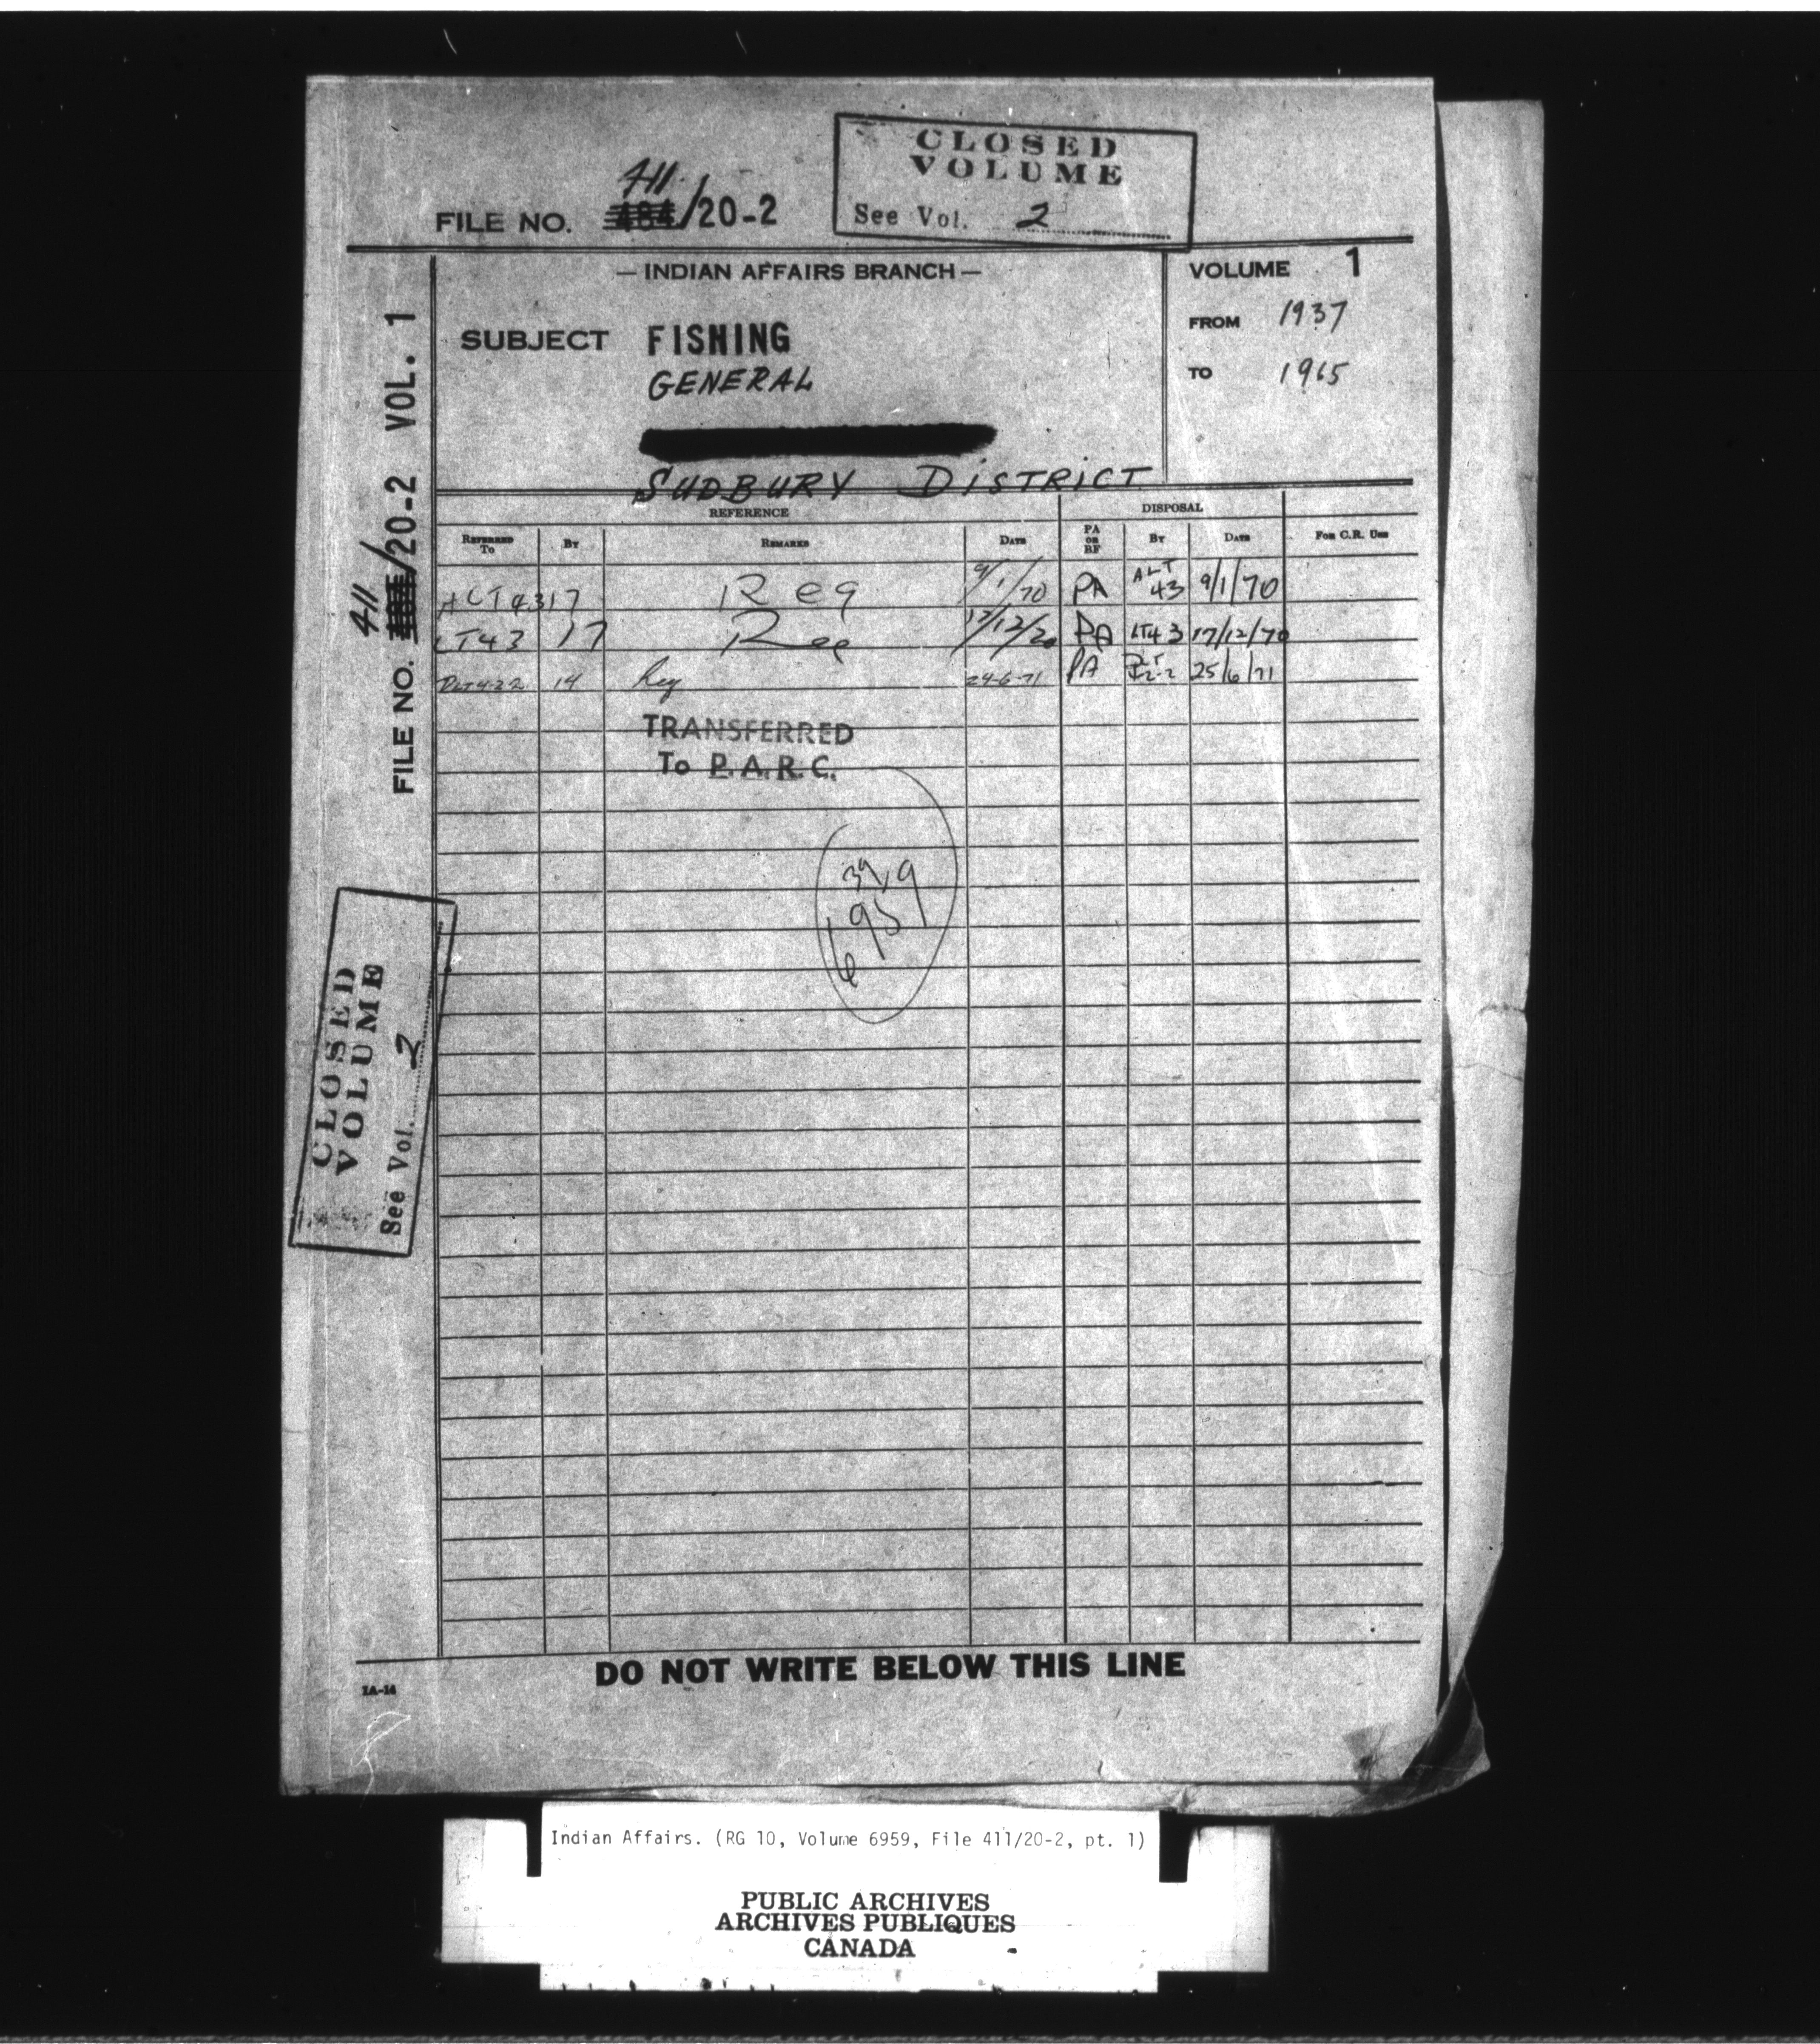 CLOSED
VOLUME
See Vol. 2
411
FILE NO. 484/20-2
— INDIAN AFFAIRS BRANCH —
VOLUME 1
SUBJECT FISHING
GENERAL
FROM 1937
TO 1965
SUDBURY DISTRICT
REFERENCE
DISPOSAL
REFERRED TO
BY
REMARKS
DATE
PA OR BF
BY
DATE
FOR C.R. USE
ALT 43 17 Req 9/1/70 PA ALT 43 9/1/70
LT43 17 Req 17/12/70 PA LT43 17/12/70
14 Req 24-6-71 PA 25/6/71
TRANSFERRED
To P.A.R.C.
6959
FILE NO. 411/20-2 VOL. 1
CLOSED
VOLUME
See Vol. 2
DO NOT WRITE BELOW THIS LINE
IA-14
Indian Affairs. (RG 10, Volume 6959, File 411/20-2, pt. 1)
PUBLIC ARCHIVES
ARCHIVES PUBLIQUES
CANADA